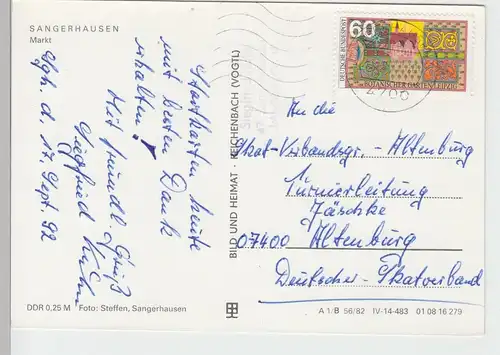 SANGERHAUSEN
Markt
Startkarten heute
mit besten Dank
erhalten!
Mit freundl. Gruß
Siegfried
Sgh. d. 17. Sept. 92
DDR 0,25 M Foto: Steffen, Sangerhausen
BILD UND HEIMAT · REICHENBACH (VOGTL)
60
DEUTSCHE BUNDESPOST
BOTANISCHER GARTEN LEIPZIG
An die
Skat-Verbandsgr. - Altenburg
Turnierleitung
Jäschke
07400 Altenburg
Deutscher Skatverband
A 1/B 56/82 IV-14-483 01 08 16 279